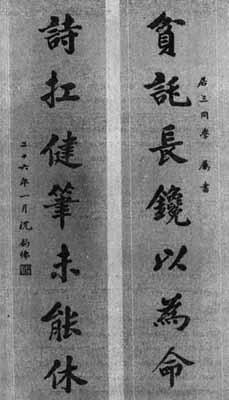 居三同學 屬書
貧託長鑱以為命
詩扛健筆未能休
二十六年一月 沈鈞儒